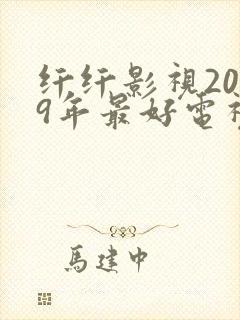 纤纤影視20
9年最好電視
馬建中